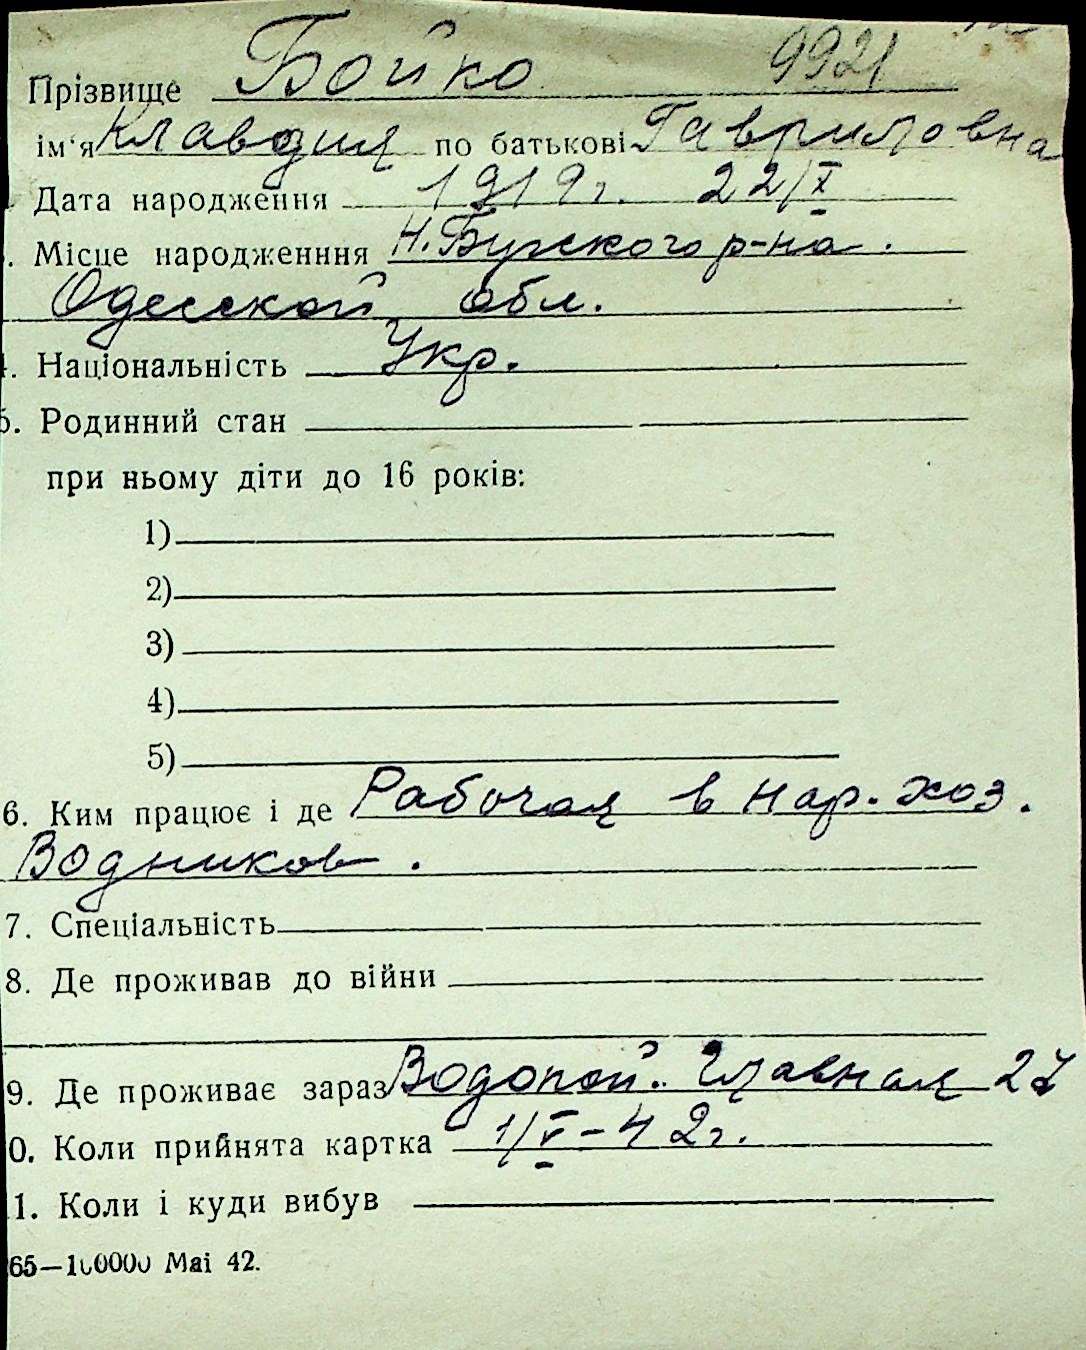 Прізвище Бойко 9921
ім'я Клавдия по батькові Гавриловна
Дата народження 1919 г. 22/X
. Місце народженння Н. Бугского р-на.
Одесской обл.
. Національність Укр.
5. Родинний стан
при ньому діти до 16 років:
1)
2)
3)
4)
5)
6. Ким працює і де Рабочая в нар. хоз.
Водников.
7. Спеціальність
8. Де проживав до війни
9. Де проживає зараз Водопой. Главная 27
0. Коли прийнята картка 1/V-42 г.
1. Коли і куди вибув
65—100000 Mai 42.